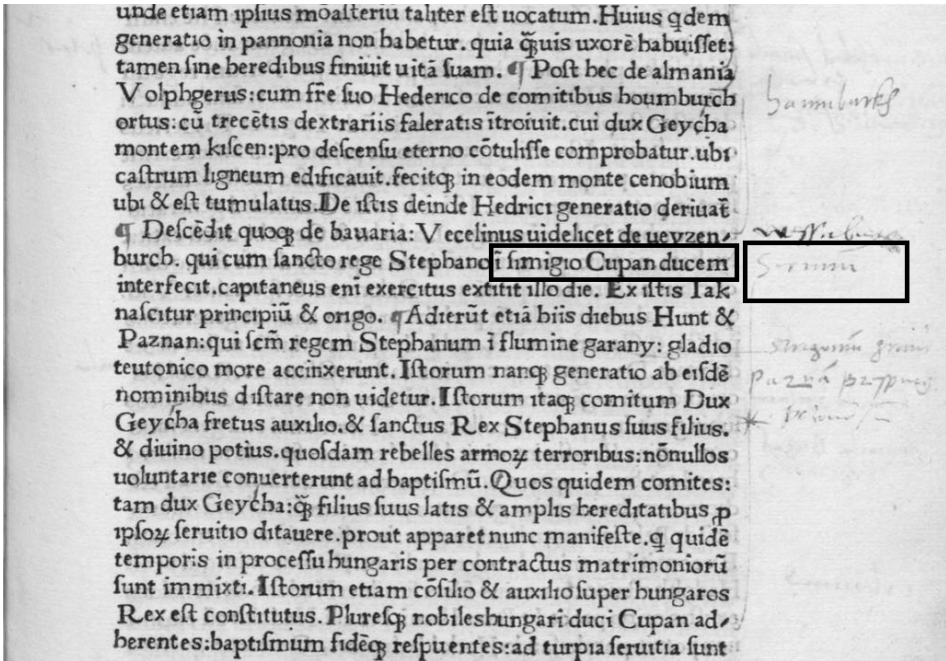 unde etiam ipsius mōasteriū taliter est uocatum. Huius qdem
generatio in pannonia non habetur. quia q̄uis uxorē habuisset:
tamen sine heredibus finiuit uitā suam. ¶ Post hec de almania
Volphgerus: cum fr̄e suo Hederico de comitibus houmburch
ortus: cū trecētis dextrariis faleratis ītroiuit. cui dux Geycha
montem kiscen: pro descensu eterno cōtulisse comprobatur. ubi
castrum ligneum edificauit. fecitq; in eodem monte cenobium
ubi & est tumulatus. De istis deinde Hedrici generatio deriuat̄
¶ Descēdit quoq; de bauaria: Vecelinus uidelicet de ueyzen-
burch. qui cum sancto rege Stephano ī simigio Cupan ducem
interfecit. capitaneus enī exercitus extitit illo die. Ex istis Iak
nascitur principiū & origo. ¶ Adierūt etiā hiis diebus Hunt &
Paznan: qui scm̄ regem Stephanum ī flumine garany: gladio
teutonico more accinxerunt. Istorum nanq; generatio ab eisdē
nominibus distare non uidetur. Istorum itaq; comitum Dux
Geycha fretus auxilio. & sanctus Rex Stephanus suus filius.
& diuino potius. quosdam rebelles armoꝝ terroribus: nōnullos
uoluntarie conuerterunt ad baptismū. Quos quidem comites:
tam dux Geycha: q̄ filius suus latis & amplis hereditatibus ꝓ
ipsoꝝ seruitio ditauere. prout apparet nunc manifeste. q quidē
temporis in processu hungaris per contractus matrimoniorū
sunt immixti. Istorum etiam cōsilio & auxilio super hungaros
Rex est constitutus. Pluresq; nobiles hungari duci Cupan ad-
herentes: baptismum fidēq; respuentes: ad turpia seruitia sunt